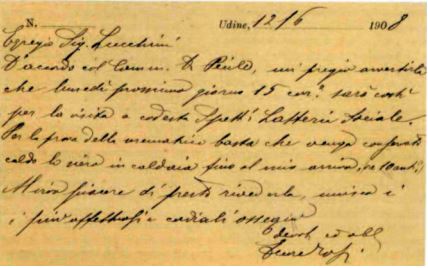 N. Udine, 12/6 1908
Egregio Sig. Lucchini
D'accordo col Comm. D. Pecile, mi pregio avvertirla
che lunedì prossimo giorno 15 corr. sarò costì
per la visita a codesta Spett. Latteria Sociale.
Per la prova della scrematrice basta che venga conservato
caldo il siero in caldaia fino al mio arrivo,
Mi sarà piacere di presto rivederla, unisco i
i più affettuosi e cordiali ossequi